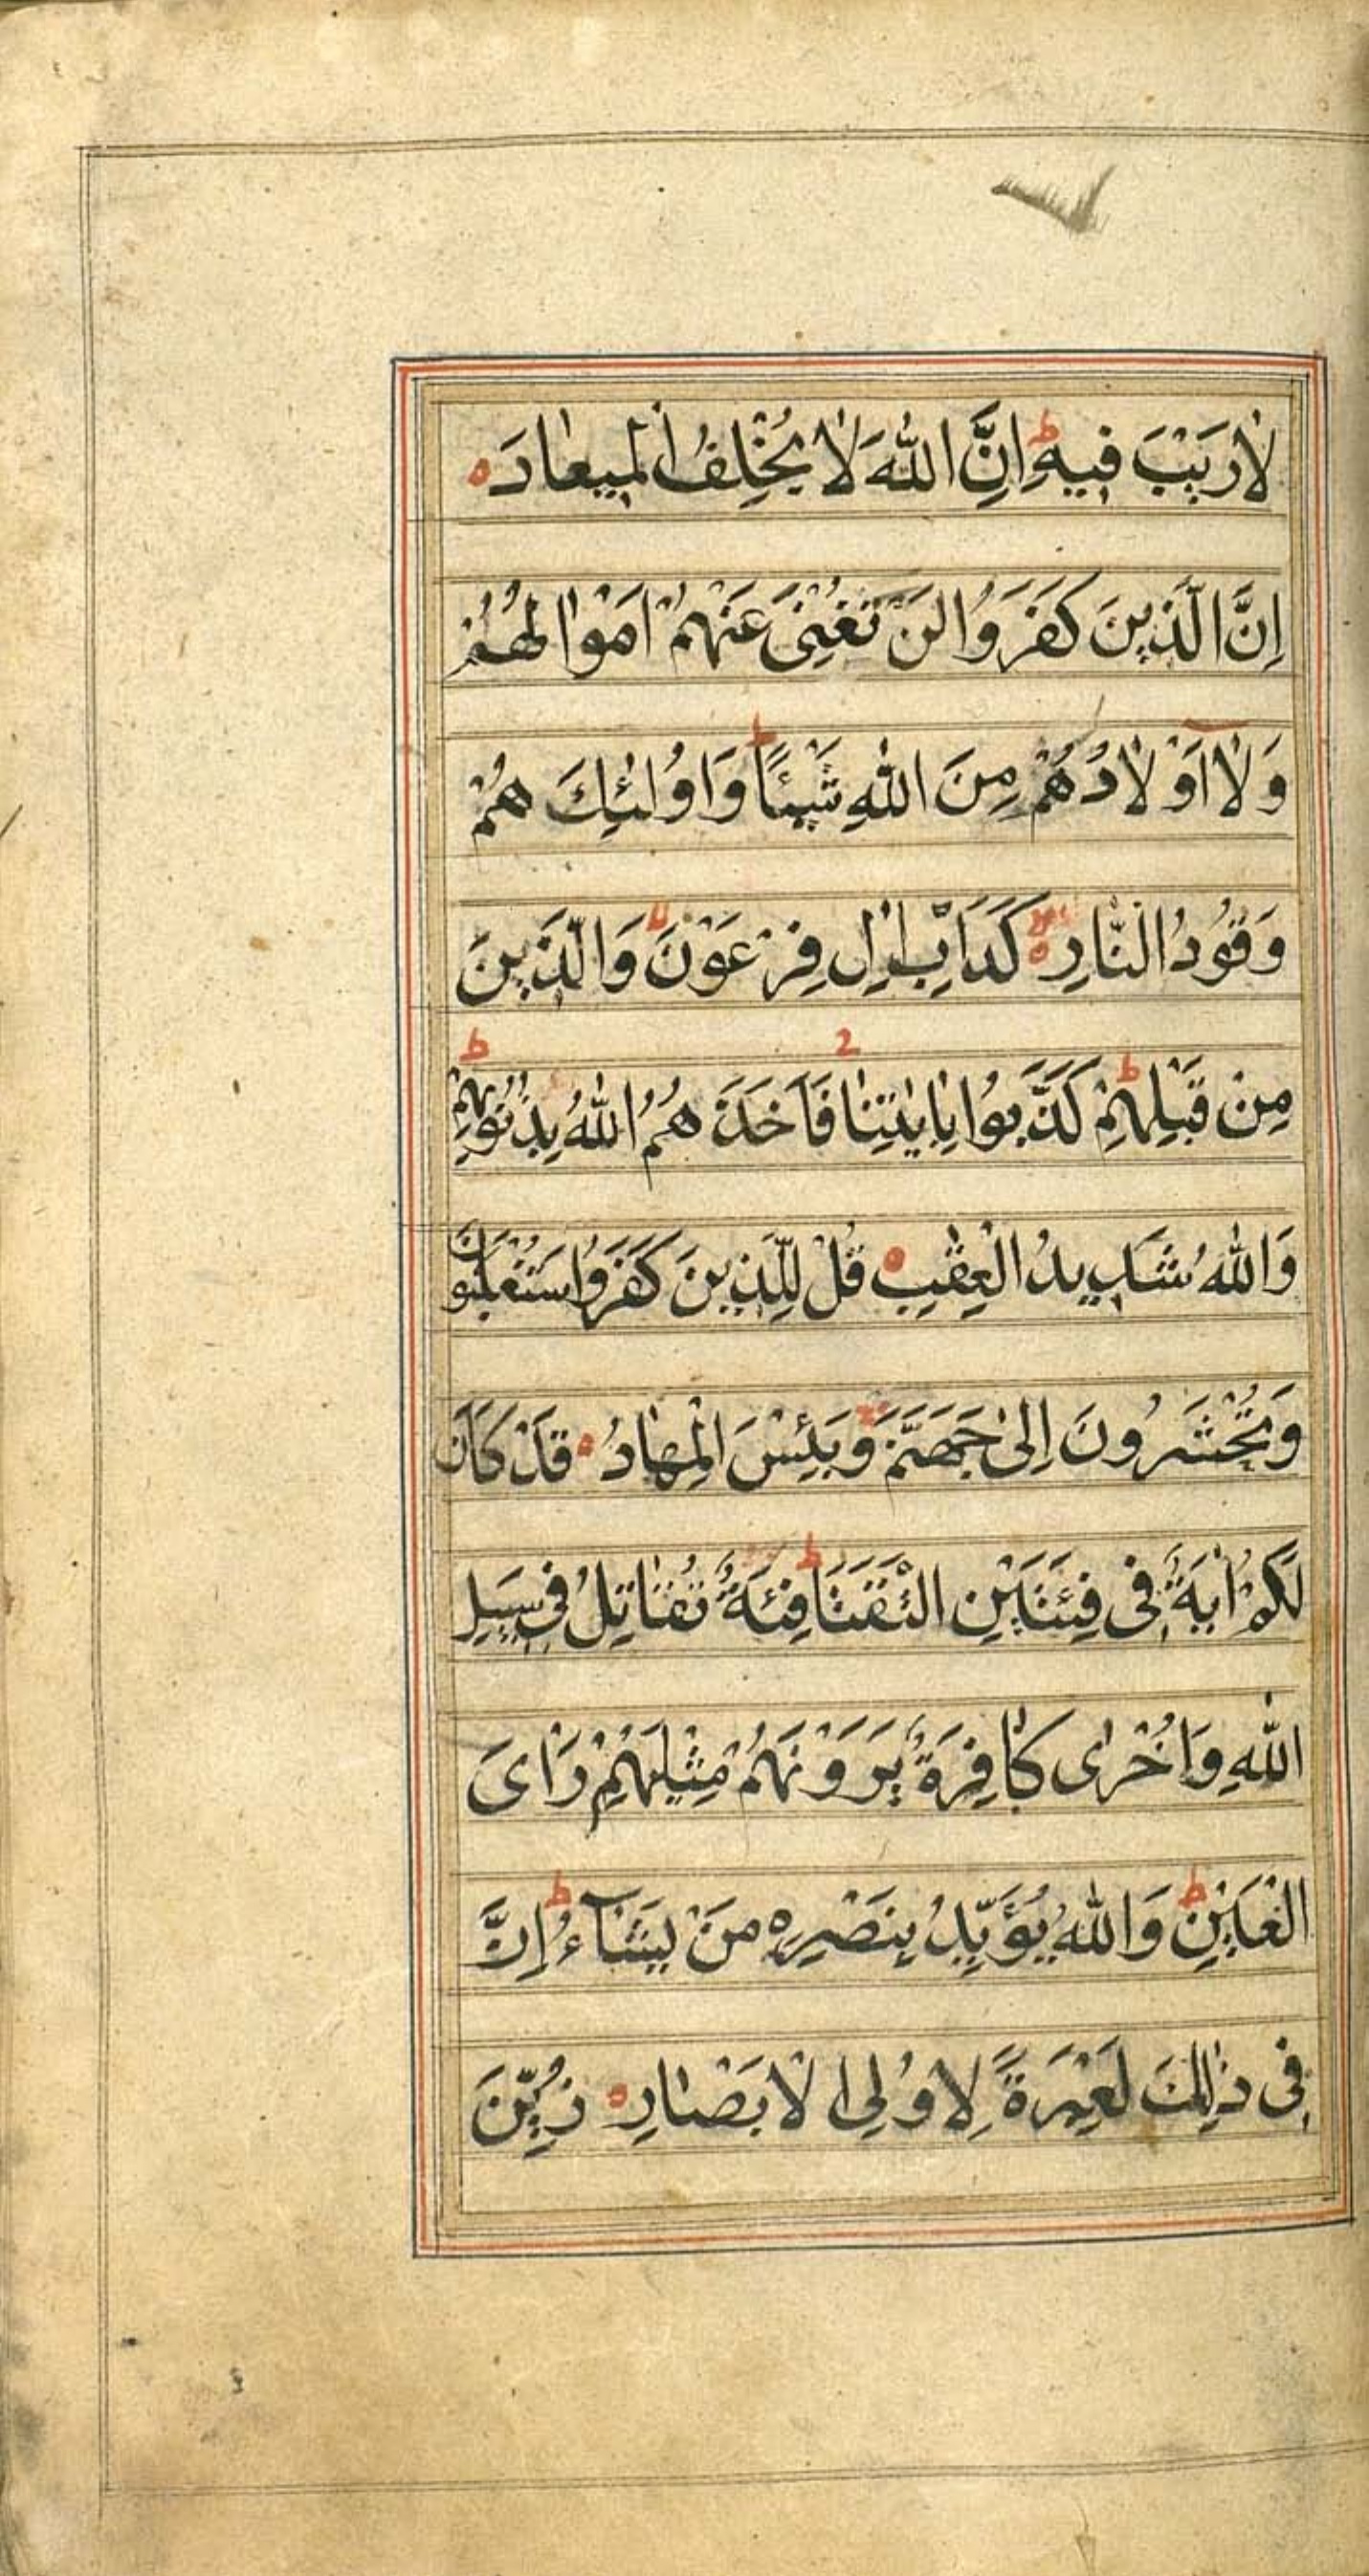 لَا رَيْبَ فِيهِ ط اِنَّ اللّٰهَ لَا يُخْلِفُ الْمِيعَادَ ه
اِنَّ الَّذِينَ كَفَرُوا لَنْ تُغْنِىَ عَنْهُمْ اَمْوَالُهُمْ
وَلَا اَوْلَادُهُمْ مِنَ اللّٰهِ شَيْئًا ط وَاُولٰئِكَ هُمْ
وَقُودُ النَّارِ ه كَدَاَبِ اٰلِ فِرْعَوْنَ لا وَالَّذِينَ
مِنْ قَبْلِهِمْ ط كَذَّبُوا بِاٰيٰتِنَا ج فَاَخَذَهُمُ اللّٰهُ بِذُنُوبِهِمْ ط
وَاللّٰهُ شَدِيدُ الْعِقٰبِ ه قُلْ لِلَّذِينَ كَفَرُوا سَتُغْلَبُونَ
وَتُحْشَرُونَ اِلٰى جَهَنَّمَ وَبِئْسَ الْمِهَادُ ه قَدْ كَانَ
لَكُمْ اٰيَةٌ فِى فِئَتَيْنِ الْتَقَتَا ط فِئَةٌ تُقَاتِلُ فِى سَبِيلِ
اللّٰهِ وَاُخْرٰى كَافِرَةٌ يَرَوْنَهُمْ مِثْلَيْهِمْ رَاْىَ
الْعَيْنِ ط وَاللّٰهُ يُؤَيِّدُ بِنَصْرِهٖ مَنْ يَشَآءُ ط اِنَّ
فِى ذٰلِكَ لَعِبْرَةً لِاُولِى الْاَبْصَارِ ه زُيِّنَ